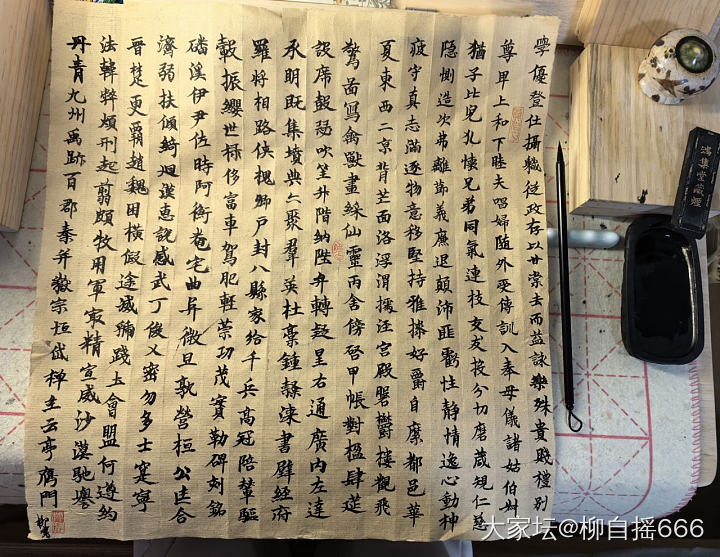 學優登仕攝職從政存以甘棠去而益詠樂殊貴賤禮別
尊卑上和下睦夫唱婦随外受傅訓入奉母儀諸姑伯叔
猶子比兒孔懷兄弟同氣連枝交友投分切磨箴規仁慈
隱惻造次弗離節義廉退顛沛匪虧性静情逸心動神
疲守真志滿逐物意移堅持雅操好爵自縻都邑華
夏東西二京背芒面洛浮渭據涇宮殿盤鬱樓觀飛
驚啚寫禽獸畫綵仙靈丙舍傍啓甲帳對楹肆筵
設席鼓瑟吹笙升階納陛弁轉疑星右通廣内左達
承明既集墳典亦聚羣英杜稾鍾隸漆書壁經府
羅將相路俠槐卿户封八縣家給千兵高冠陪輦驅
轂振纓世禄侈富車駕肥輕策功茂實勒碑刻銘
磻溪伊尹佐時阿衡奄宅曲阜微旦孰營桓公匡合
濟弱扶傾綺迴漢惠說感武丁俊乂密勿多士寔寧
晉楚更霸趙魏困橫假途滅虢踐土會盟何遵約
法韓弊煩刑起翦頗牧用軍最精宣威沙漠馳譽
丹青九州禹跡百郡秦并嶽宗恒岱禪主云亭鴈門
鴻集堂藏煙
大家坛@柳自摇666